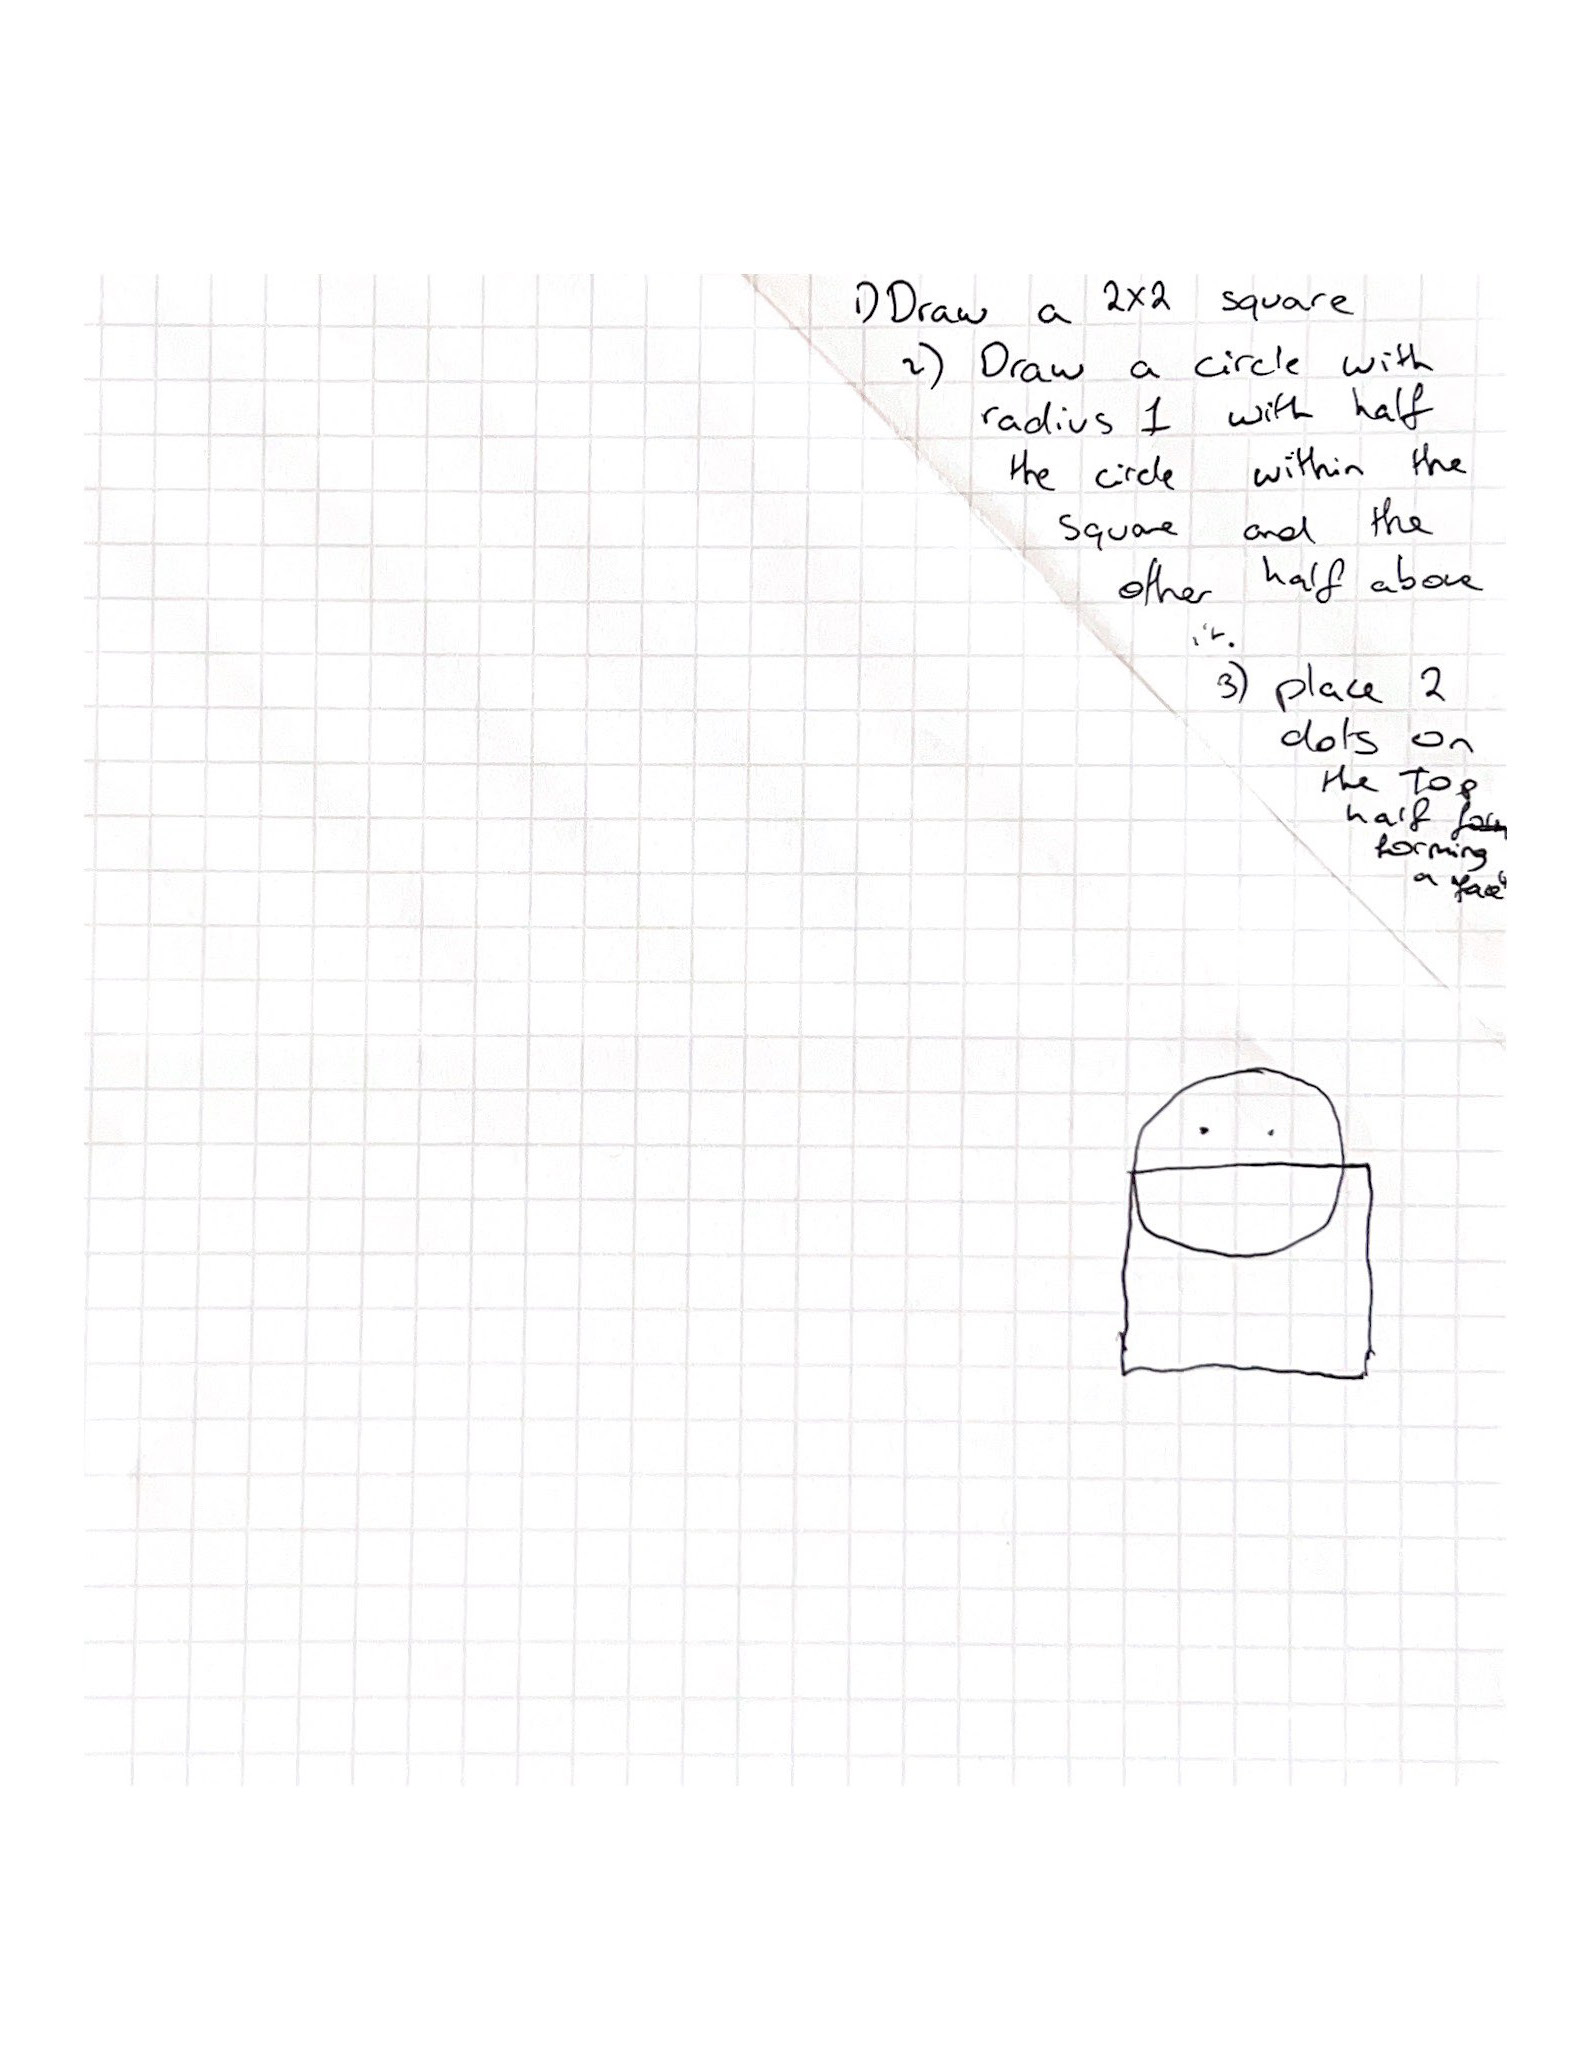 1) Draw a 2x2 square
2) Draw a circle with
radius 1 with half
the circle within the
square and the
other half above
it.
3) place 2
dots on
the top
half form
forming
a "face"